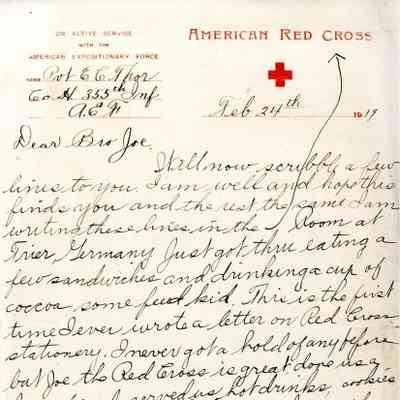 ON ACTIVE SERVICE
WITH THE
AMERICAN EXPEDITIONARY FORCE
AMERICAN RED CROSS
Pvt E C
Co H. 355th Inf
A.E.F
Feb 24th 1919
Dear Bro Joe.
Will now scribble a few
lines to you. I am well and hope this
finds you and the rest the same I am
writing these lines in the Room at
Trier, Germany Just got thru eating a
few sandwiches and drinking a cup of
cocoa some feed kid. This is the first
time I ever wrote a letter on Red Cross
stationery. I never got a hold of any before
but Joe the Red Cross is great dope us a
served us hot drinks, cookies